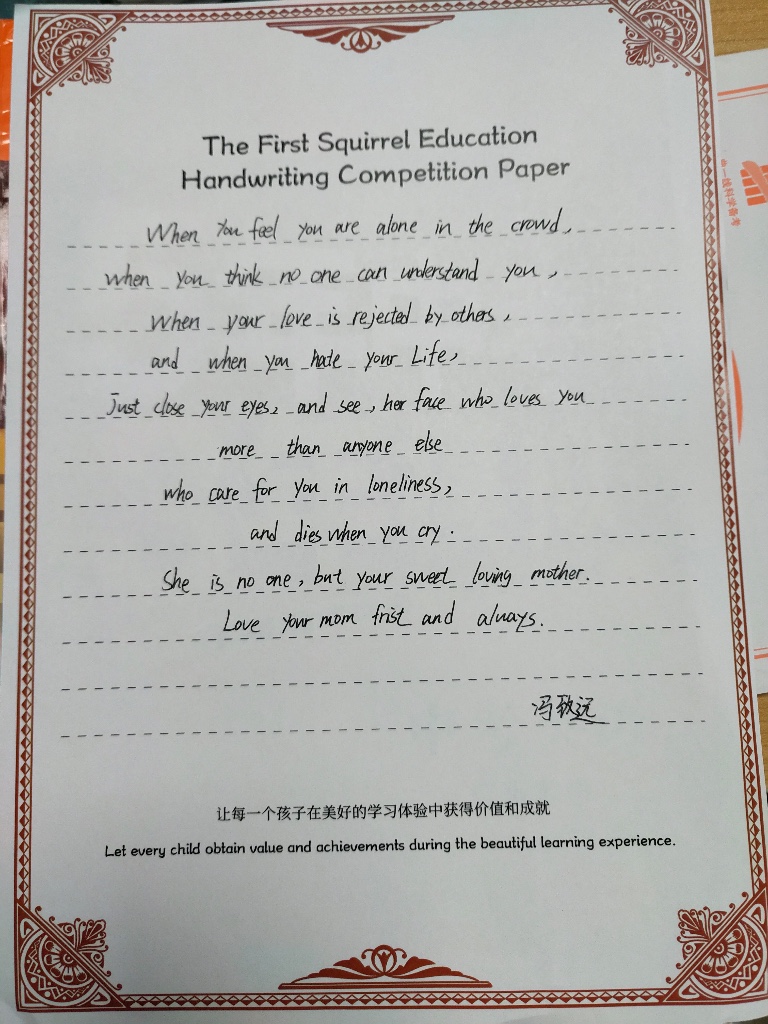 The First Squirrel Education
Handwriting Competition Paper
When You feel you are alone in the crowd,
when you think no one can understand you,
When your love is rejected by others,
and when you hate your Life,
Just close your eyes, and see, her face who loves you
more than anyone else
who care for you in loneliness,
and dies when you cry.
She is no one, but your sweet loving mother.
Love your mom frist and always.
冯致远
让每一个孩子在美好的学习体验中获得价值和成就
Let every child obtain value and achievements during the beautiful learning experience.